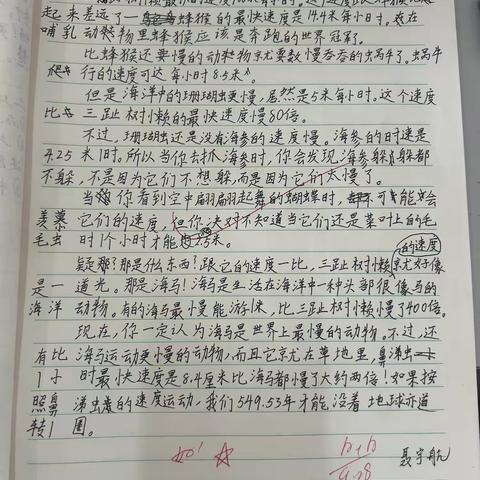 起来差远了 蜂猴的最快速度是14.4米每小时。在
哺乳动物里蜂猴应该是奔跑的世界冠军。
比蜂猴还要慢的动物就要数慢吞吞的蜗牛了。蜗牛
爬行的速度可达每小时8.5米。
但是海洋中的珊瑚虫更慢,居然是5米每小时。这个速度
比三趾树懒的最快速度慢80倍。
不过,珊瑚虫还是没有海参的速度慢。海参的时速是
4.25米1时。所以当你去抓海参时,你会发现海参躲都
不躲,不是因为它们不想躲,而是因为它们太慢了。
当你看到空中翩翩起舞的蝴蝶时,可能会
羡慕它们的速度,但你决对不知道当它们还是菜叶上的毛
毛虫时1个小时才能 2.5米。
疑那?那是什么东西?跟它的速度一比,三趾树懒的速度就好像
是一道光。那是海马!海马是生活在海洋中一种头部很像马的
海洋动物。有的海马最慢能游 ,比三趾树懒慢了400倍。
现在,你一定认为海马是世界上最慢的动物。不过,还
有比海马运动更慢的动物,而且它就在草地里,鼻涕虫
1小时最快速度是8.4厘米比海马都慢了大约两倍!如果按
照鼻涕虫的速度运动,我们549.53年才能沿着地球赤道
转1圈。
聂宇航
4.28